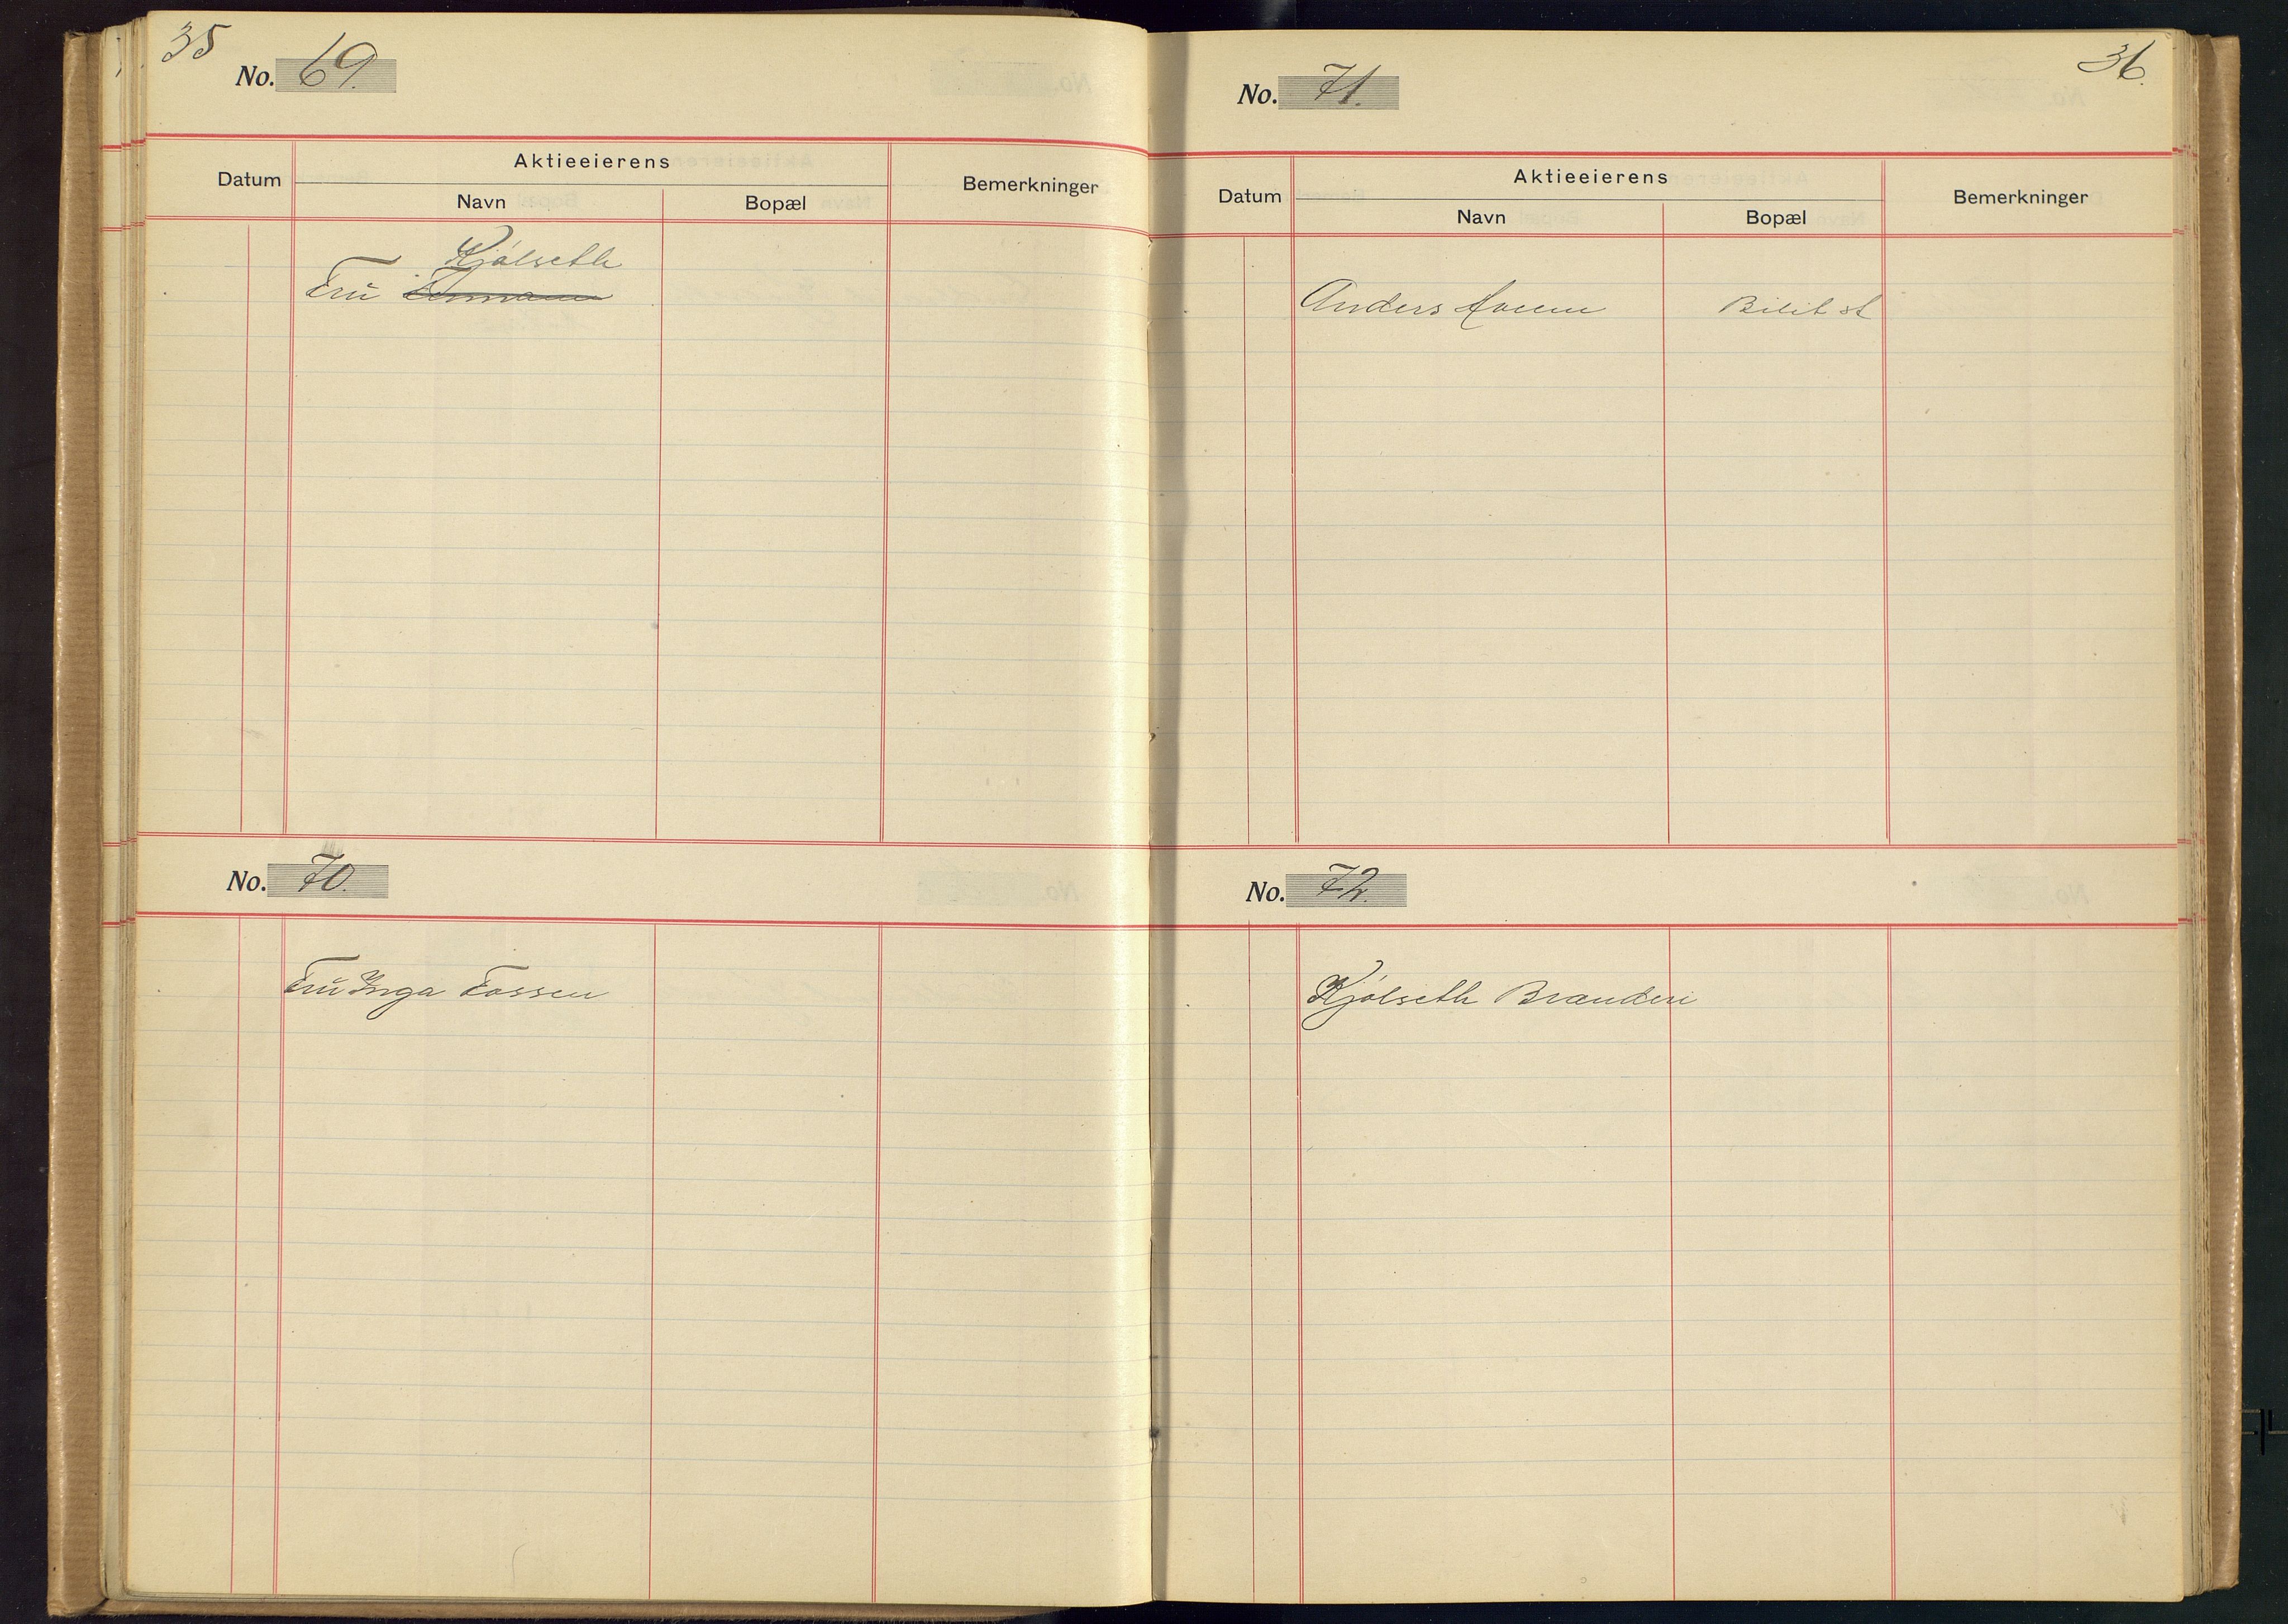 35
No. 69.
Aktieeierens
Datum
Navn
Bopæl
Bemerkninger
Kjølseth
Fru
No. 70.
Fru Inga Fossen
36.
No. 71.
Aktieeierens
Datum
Navn
Bopæl
Bemerkninger
Anders Moeun
Bilit st
No. 72.
Kjølseth Brænderi